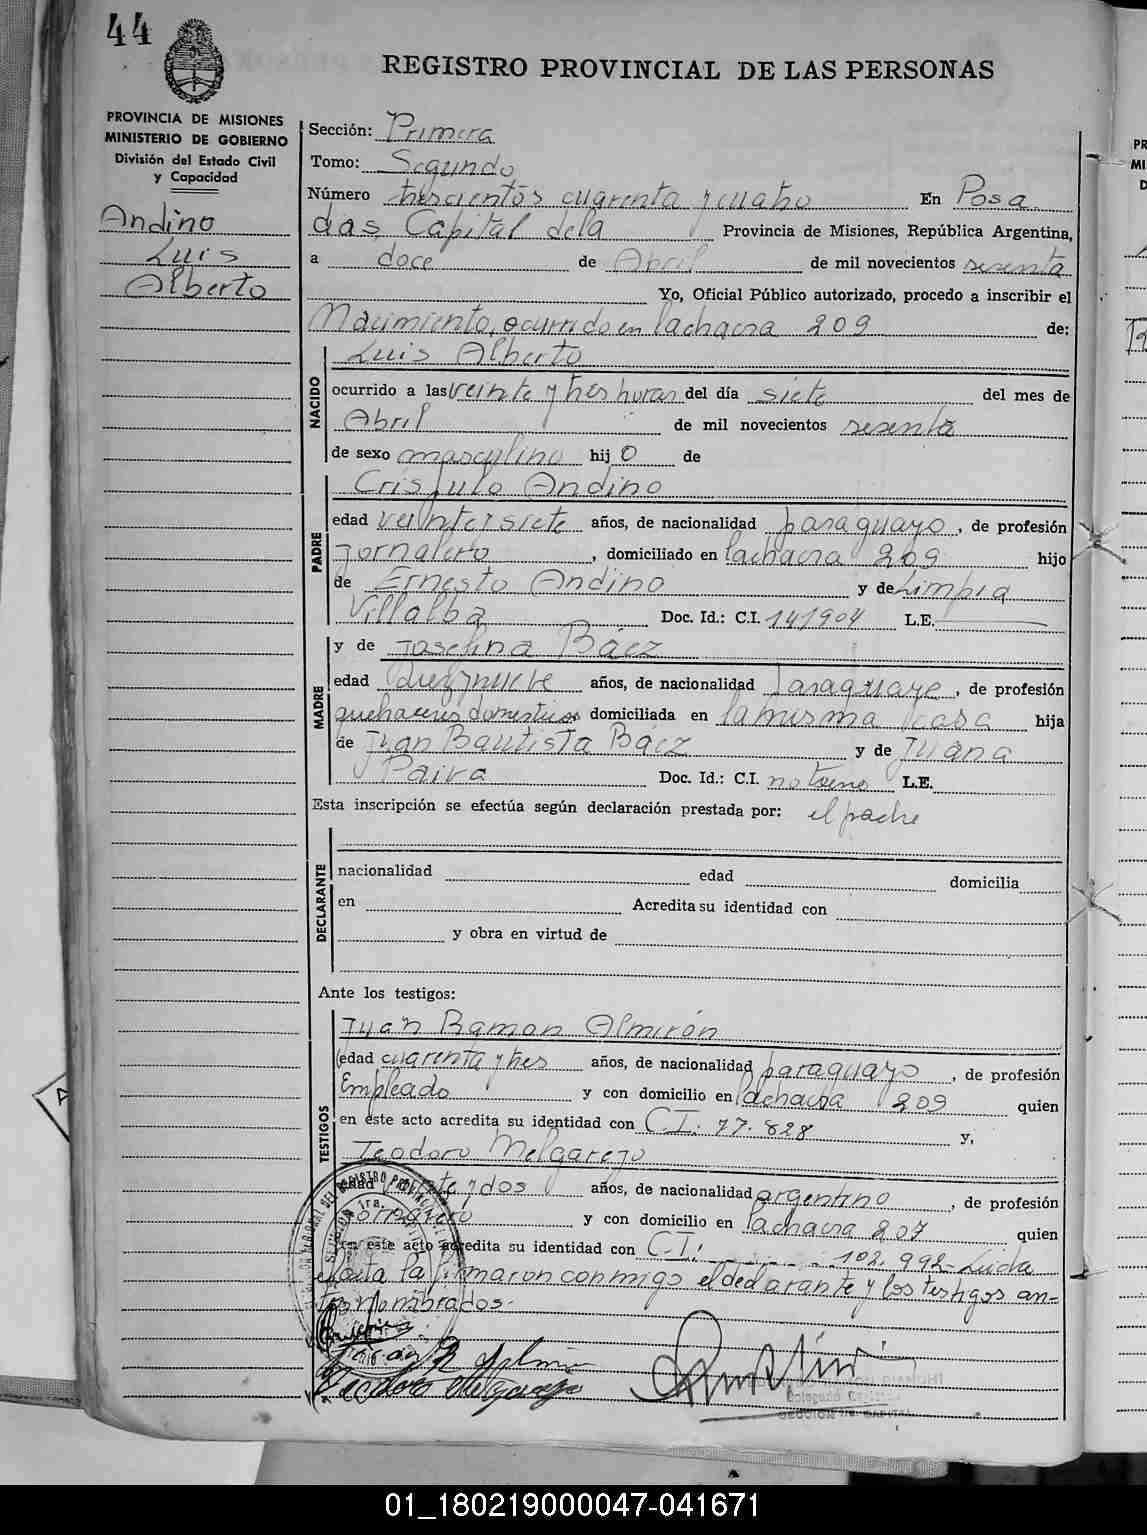 44
REGISTRO PROVINCIAL DE LAS PERSONAS
PROVINCIA DE MISIONES
MINISTERIO DE GOBIERNO
División del Estado Civil
y Capacidad
Andino
Luis
Alberto
Sección: Primera
Tomo: Segundo
Número trescientos cuarenta y cuatro En Posa
das, Capital dela Provincia de Misiones, República Argentina,
a doce de Abril de mil novecientos sesenta
Yo, Oficial Público autorizado, procedo a inscribir el
Nacimiento, ocurrido en lachacra 209 de:
NACIDO
Luis Alberto
ocurrido a las veinte y tres horas del día siete del mes de
Abril de mil novecientos sesenta
de sexo masculino hijo de
PADRE
Crisjulo Andino
edad veintisiete años, de nacionalidad paraguayo, de profesión
Jornalero, domiciliado en lachacra 209 hijo
de Ernesto Andino y de Limpia
Villalba Doc. Id.: C.I. 141904 L.E.
MADRE
y de Josefina Báez
edad diez y nueve años, de nacionalidad Paraguaya, de profesión
quehaceres domesticos domiciliada en la misma casa hija
de Juan Bautista Báez y de Juana
Paiva Doc. Id.: C.I. no tiene L.E.
Esta inscripción se efectúa según declaración prestada por: el padre
DECLARANTE
nacionalidad edad domicilia
en Acredita su identidad con
y obra en virtud de
Ante los testigos:
TESTIGOS
Juan Ramon Almirón
edad cuarenta y tres años, de nacionalidad paraguayo, de profesión
Empleado y con domicilio en lachacra 209 quien
en este acto acredita su identidad con C.I. 77.828 y,
Teodoro Melgarejo
edad y dos años, de nacionalidad argentino, de profesión
Jornalero y con domicilio en lachacra 207 quien
en este acto acredita su identidad con C.I: 102.992- Leida
el acta la firmaron conmigo el declarante y los testigos an-
tes nombrados.-
Juan R Almiron
Teodoro Melgarejo
01_180219000047-041671